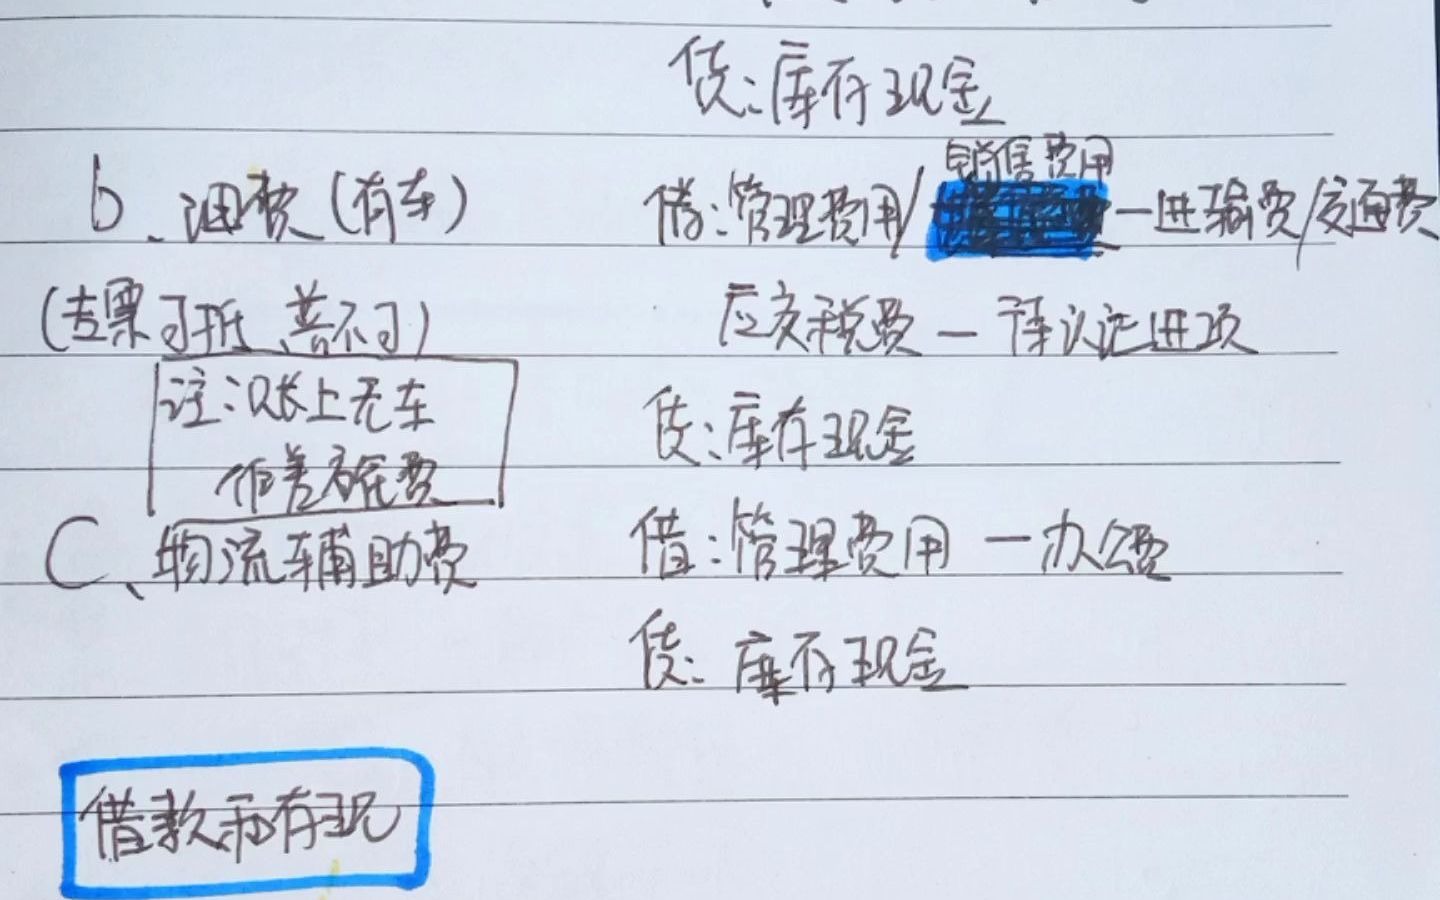 贷:库存现金
销售费用
b、油费(有车) 借:管理费用/ —运输费/交通费
(专票可抵、普不可) 应交税费—待认证进项
注:账上无车 贷:库存现金
作差旅费
C、物流辅助费 借:管理费用—办公费
贷:库存现金
借款和存现